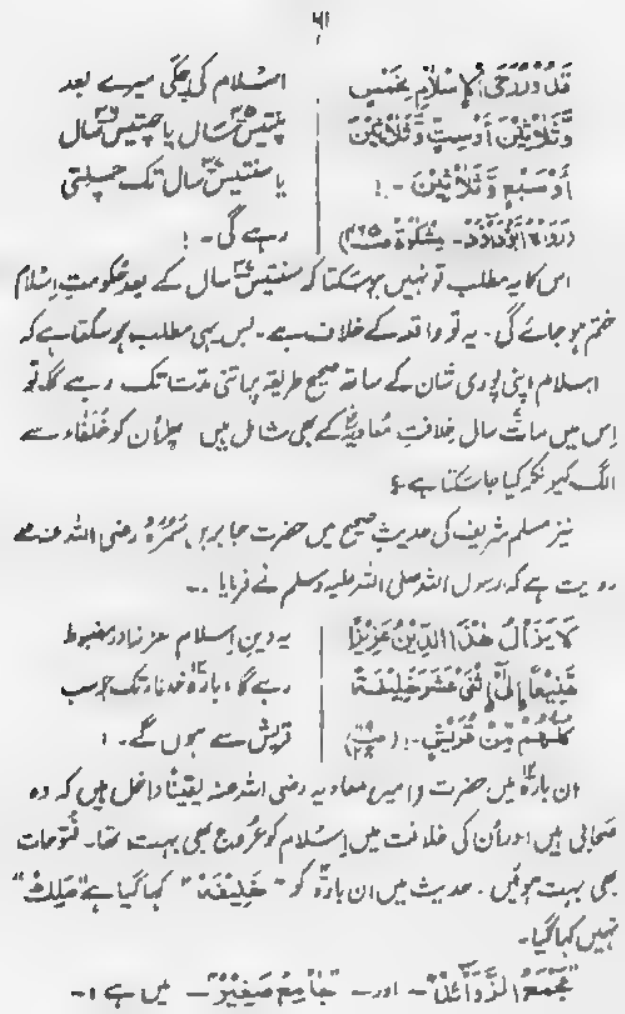 ۵۱
تَدُوْرُ رَحَى الْإِسْلَامِ بِخَمْسٍ
وَّثَلَاثِيْنَ أَوْ سِتٍّ وَّثَلَاثِيْنَ
أَوْ سَبْعٍ وَّثَلَاثِيْنَ - !
(رَوَاهُ أَبُوْدَاؤُدَ - مِشْكٰوةُ ص۴۶۵)
اسلام کی چکی میرے بعد
پنتیس۳۵ سال یا چھتیس۳۶ سال
یا سنتیس۳۷ سال تک چلتی
رہے گی - !
اس کا یہ مطلب تو نہیں ہوسکتا کہ سنتیس۳۷ سال کے بعد حکومتِ اِسلام
ختم ہو جائے گی - یہ تو واقعہ کے خلاف ہے - بس یہی مطلب ہو سکتا ہے کہ
اسلام اپنی پوری شان کے ساتھ صحیح طریقہ پر اتنی مدّت تک رہے گا، تو
اِس میں سات سال خلافتِ مُعاویہؓ کے بھی شامل ہیں پھر اُن کو خُلَفاء سے
الگ کیونکر کیا جاسکتا ہے ؟
نیز مسلم شریف کی حدیثِ صحیح میں حضرت جابر بن سَمُرَہ رضی اللہ عنہ سے
روایت ہے کہ رسول اللہ صلی اللہ علیہ وسلم نے فرمایا :-
لَا يَزَالُ هٰذَا الدِّيْنُ عَزِيْزًا
مَّنِيْعًا إِلَى اثْنَىْ عَشَرَ خَلِيْفَةً
كُلُّهُمْ مِّنْ قُرَيْشٍ - !
یہ دینِ اِسلام عزیز اور مضبوط
رہے گا، بارہ۱۲ خلفاء تک جو سب
قریش سے ہوں گے - !
ان بارہ۱۲ میں حضرت (امیر) معاویہ رضی اللہ عنہ یقیناً داخل ہیں کہ وہ
صَحابی ہیں اور اُن کی خلافت میں اِسلام کو عُروج بھی بہت تھا - فُتوحات
بھی بہت ہوئیں - حدیث میں ان بارہ کو " خَلِيْفَة " کہا گیا ہے "مَلِكْ"
نہیں کہا گیا -
"مَجْمَعُ الزَّوَائِد" - اور - "جَامِعْ صَغِيْر" - میں ہے :-